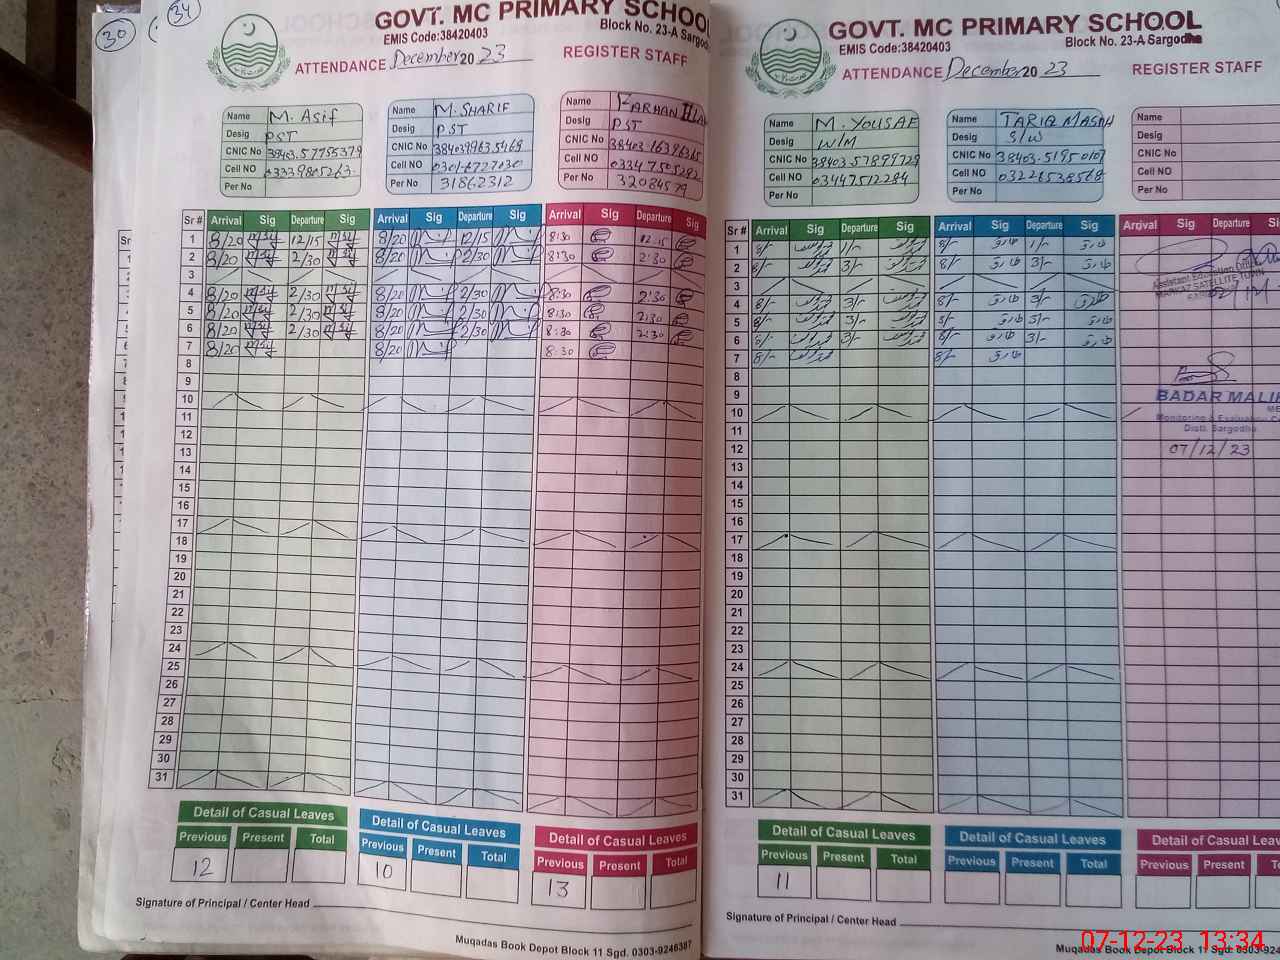 30
34
GOVT. MC PRIMARY SCHOOL
EMIS Code:38420403
Block No. 23-A Sargodha
ATTENDANCE December 20 23
REGISTER STAFF
Name M. Asif
Desig PST
CNIC No
Cell NO
Per No
Name M. SHARIF
Desig PST
CNIC No
Cell NO
Per No 31862312
Name FARHAN
Desig PST
CNIC No
Cell NO
Per No 32084579
Sr # Arrival Sig Departure Sig Arrival Sig Departure Sig Arrival Sig Departure Sig
1 8/20 12/15 8/20 12/15 8:30 12:15
2 8/20 2/30 8/20 2/30 8:30 2:30
3
4 8/20 2/30 8/20 2/30 8:30 2:30
5 8/20 2/30 8/20 2/30 8:30 2:30
6 8/20 2/30 8/20 2/30 8:30 2:30
7 8/20 8/20 8:30
8
9
10
11
12
13
14
15
16
17
18
19
20
21
22
23
24
25
26
27
28
29
30
31
Detail of Casual Leaves
Previous Present Total
12
Detail of Casual Leaves
Previous Present Total
10
Detail of Casual Leaves
Previous Present Total
13
Signature of Principal / Center Head
Muqadas Book Depot Block 11 Sgd. 0303-9246387
GOVT. MC PRIMARY SCHOOL
EMIS Code:38420403
Block No. 23-A Sargodha
ATTENDANCE December 20 23
REGISTER STAFF
Name M. YOUSAF
Desig W/M
CNIC No 38403.57899729
Cell NO 03447512284
Per No
Name TARIQ MASIH
Desig S/W
CNIC No 38403.51950107
Cell NO 03226538568
Per No
Name
Desig
CNIC No
Cell NO
Per No
Sr # Arrival Sig Departure Sig Arrival Sig Departure Sig Arrival Sig Departure Sig
1 8/- 1/- 8/- طارق 1/- طارق
2 8/- 3/- 8/- طارق 3/- طارق
3
4 8/- 3/- 8/- طارق 3/- طارق
5 8/- 3/- 8/- طارق 3/- طارق
6 8/- 3/- 8/- طارق 3/- طارق
7 8/- 8/- طارق
8
9
10
11
12
13
14
15
16
17
18
19
20
21
22
23
24
25
26
27
28
29
30
31
MARKAZ SATELLITE TOWN
BADAR MALIK
Monitoring & Evaluation
Distt. Sargodha
07/12/23
Detail of Casual Leaves
Previous Present Total
11
Detail of Casual Leaves
Previous Present Total
Detail of Casual Leaves
Previous Present
Signature of Principal / Center Head
Muqadas Book Depot Block 11 Sgd. 0303-924
07-12-23 13:34